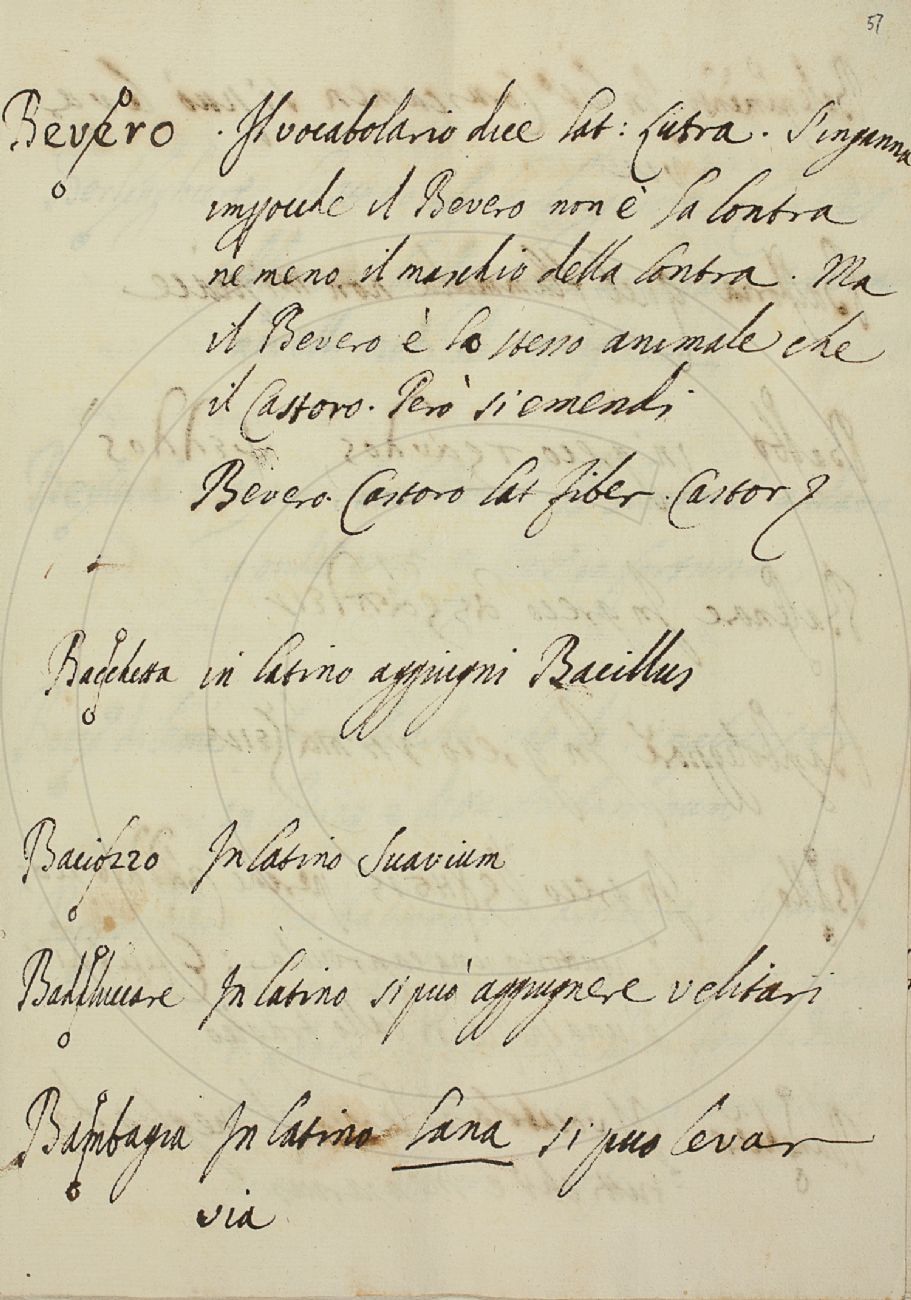 57
Bevero . Il vocabolario dice lat: Lutra . S'inganna
imperoche il Bevero non è la lontra
ne meno il maschio della lontra . Ma
il Bevero è lo stesso animale che
il Castoro. Però si emendi
Bevero. Castoro lat fiber . Castor
Bacchetta in latino aggiugni Bacillus
Baciozzo In latino Suavium
Badaluccare In latino si può aggiugnere velitari
Bambagia In latino Lana si puo levar
via